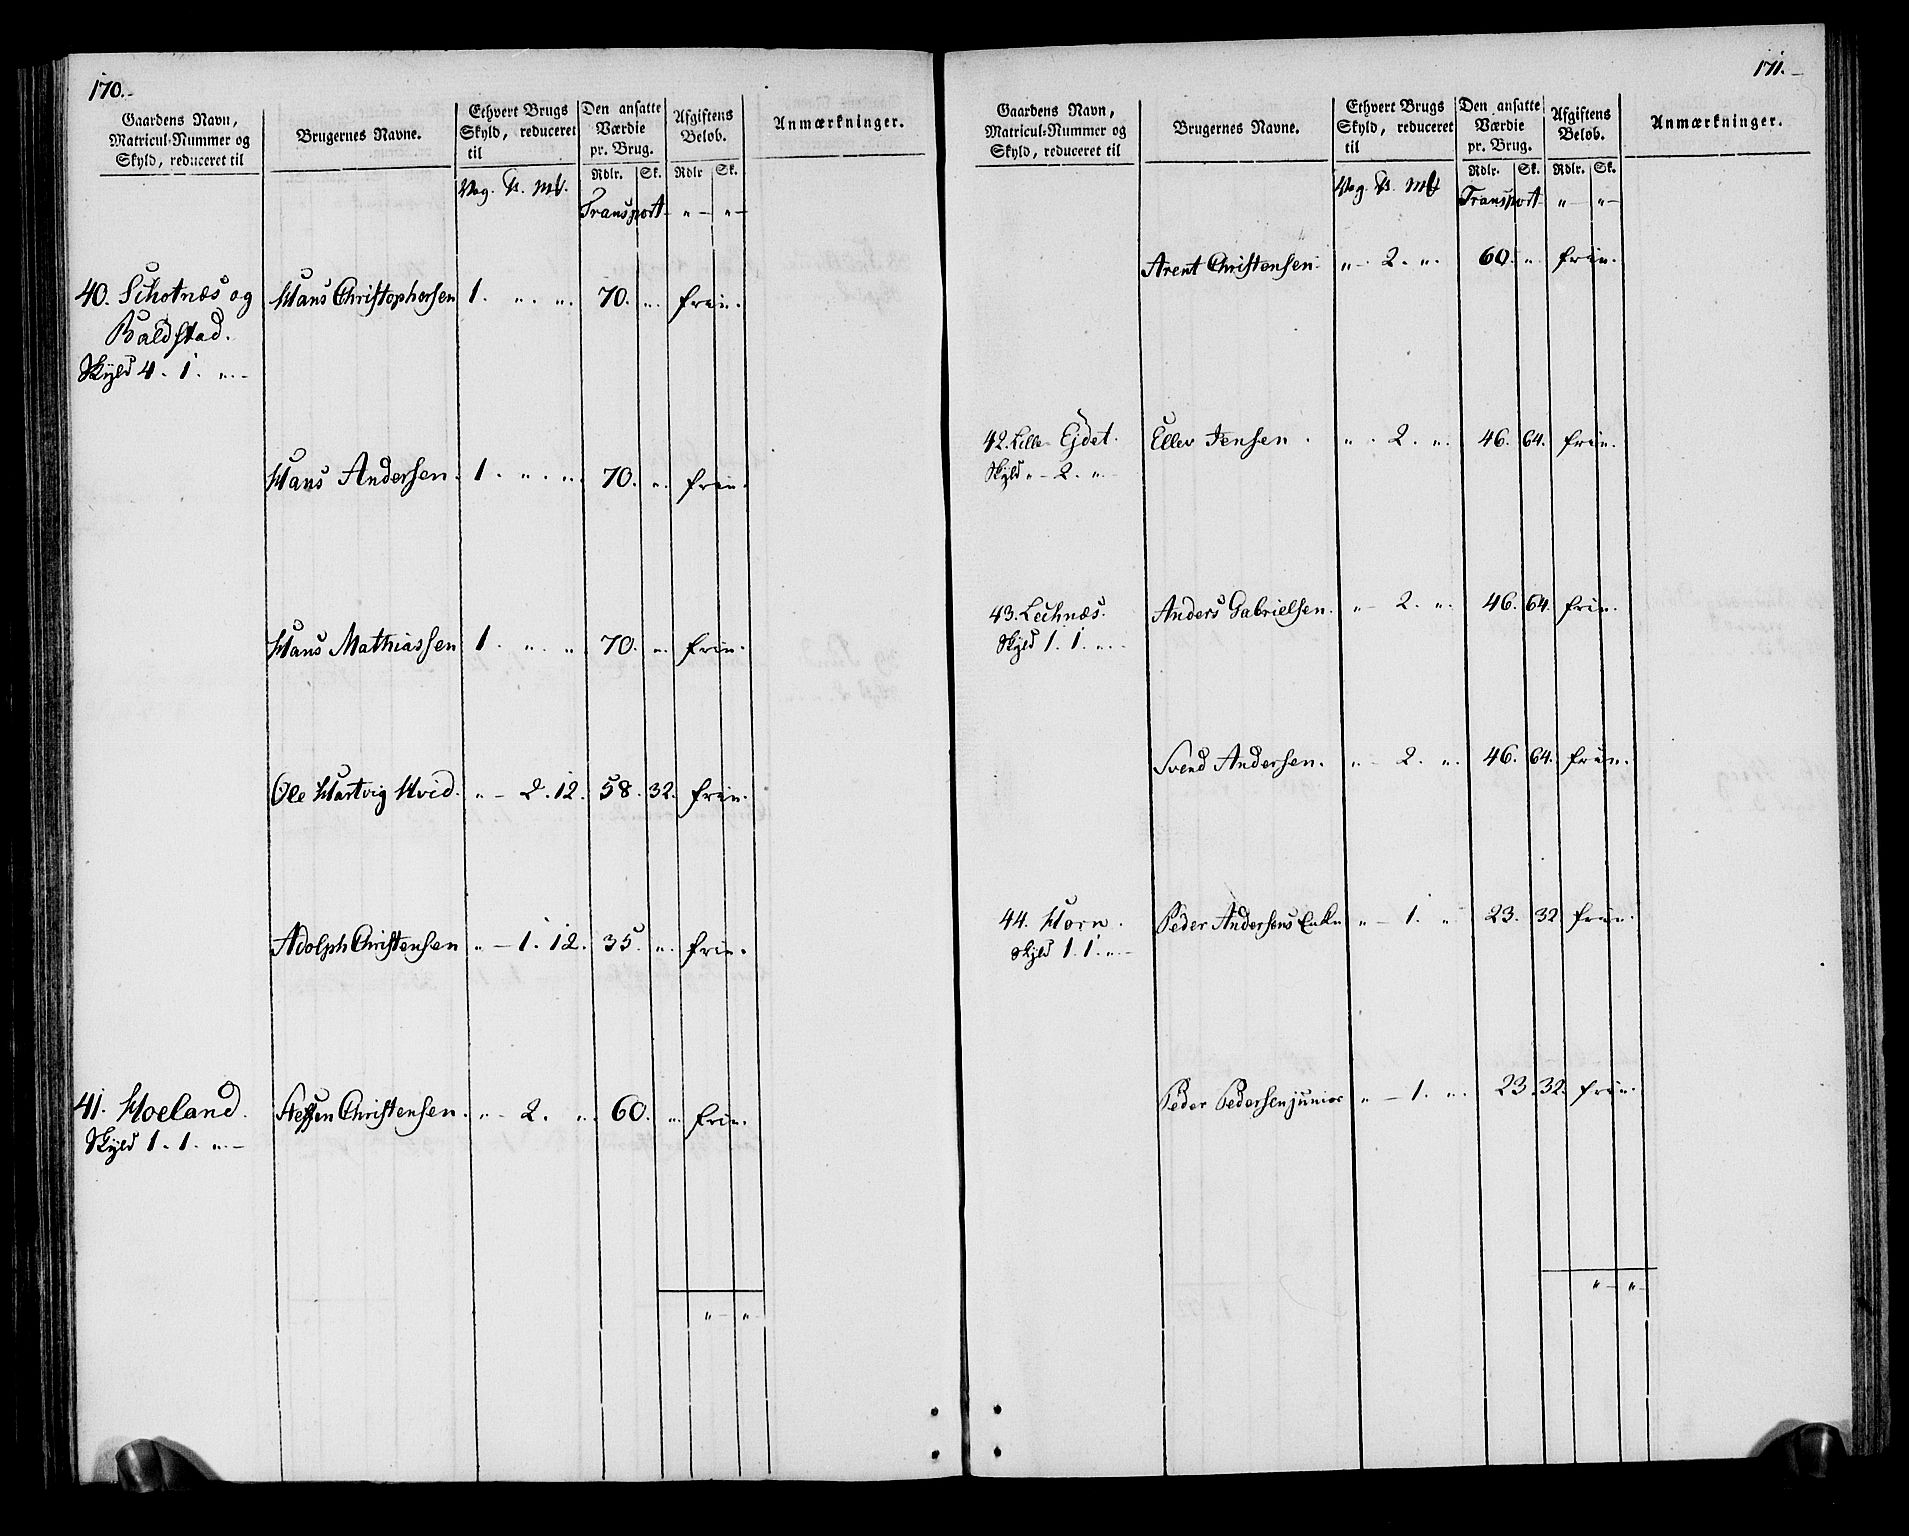 170.-
Gaardens Navn, Matricul-Nummer og Skyld, reduceret til
Brugernes Navne.
Ethvert Brugs Skyld, reduceret til
Den ansatte Værdie pr. Brug.
Afgiftens Beløb.
Anmærkninger.
Rdlr. Sk. Rdlr Sk.
Vog. Mk.
Transport „ - „ -
40. Schotnæs og Hans Christophersen 1. „ „. 70. „. frie.
Baldstad.
Skyld 4. 1. „.-
Hans Andersen. 1. „. „. 70. „. frie.
Hans Mathiassen 1. „. „. 70. „. frie.
Ole Hartvig Hvid. „ - 2. 12. 58. 32. frie.
Adolph Christensen „ - 1. 12. 35. „. frie.
41. Hoeland. Steffen Christensen. „ - 2. „. 60. „. frie.
Skyld 1. 1. „.-
„ - „ -
171.-
Gaardens Navn, Matricul-Nummer og Skyld, reduceret til
Brugernes Navne.
Ethvert Brugs Skyld, reduceret til
Den ansatte Værdie pr. Brug.
Afgiftens Beløb.
Anmærkninger.
Rdlr. Sk. Rdlr. Sk.
Vog. Mk
Transport „ - „ -
Arent Christensen. „ - 2. „. 60. „. frie.
42. Lille Ejdet. Ellev Jensen. „. 2. „. 46. 64. frie.
Skyld „ - 2. „.-
43. Lechnæs. Anders Gabrielsen. „ - 2. „. 46. 64. frie.
Skyld 1. 1. „.-
Svend Andersen. „ - 2. „. 46. 64. frie.
44. Horn. Peder Andersens Enke „ - 1. „ 23. 32 frie.
Skyld 1. 1. „.-
Peder Pedersen junior „ - 1. „. 23. 32. frie.
„ - „ -